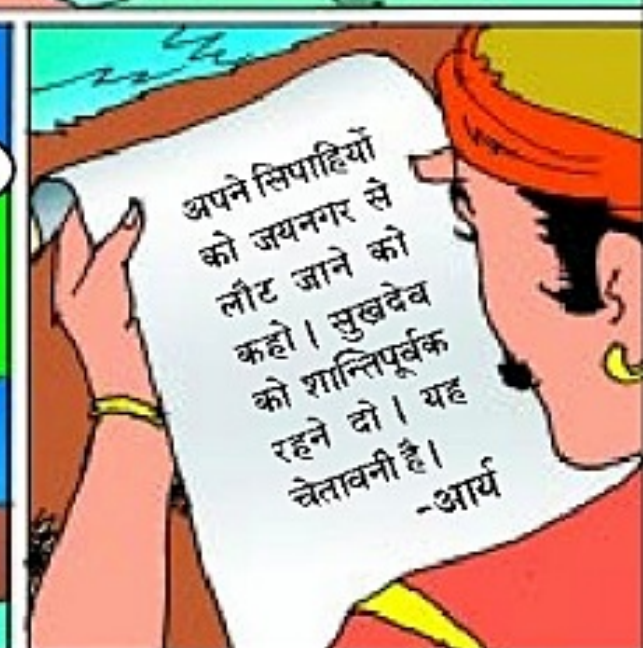 अपने सिपाहियों
को जयनगर से
लौट जाने को
कहो। सुखदेव
को शान्तिपूर्वक
रहने दो। यह
चेतावनी है।
-आर्य